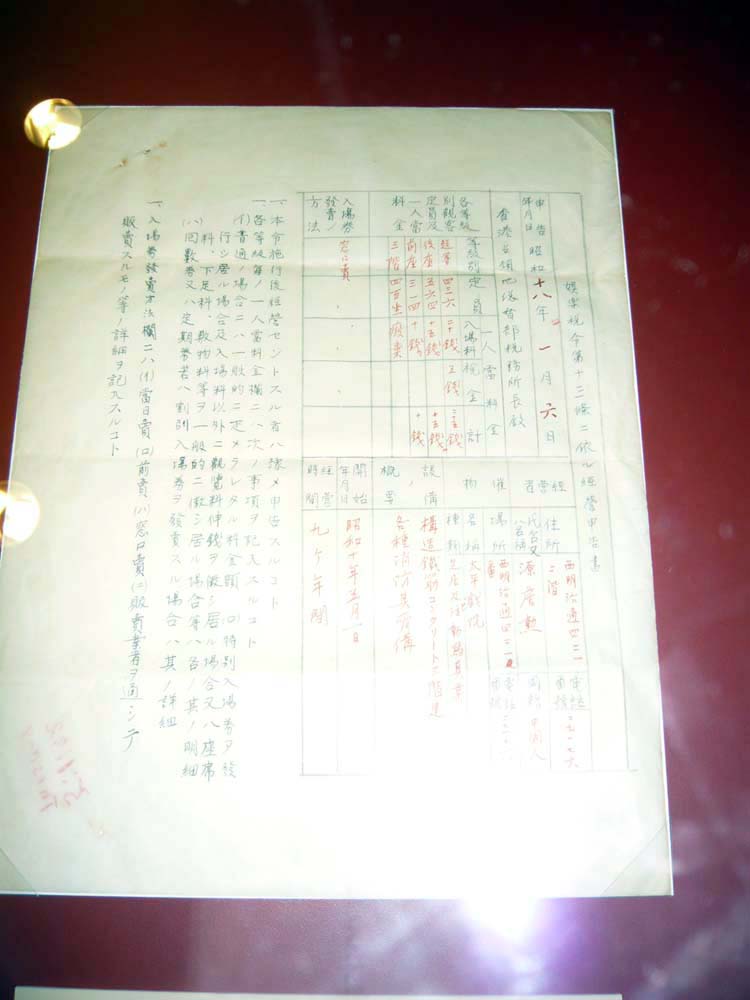 娯楽税令第十三條ニ依ル経營申告書
申告年月日 昭和十八年一月六日
香港占領地総督部税務所長殿
経営者
住所 西明治通四二一 二階
電話番號
氏名又ハ名稱 源詹勲
國籍 中國人
催物
場所 西明治通四二一
電話番號
名稱 太平戯院
種類
設備ノ概要
構造鐵筋コンクリート三階建
各種消防具完備
開始年月日 昭和十年五月一日
経營時間 九ケ年間
各等級別観客定員及一人當料金
等級別 定員 一人當料金
入場料 税金 計
超等 四三六 二十錢 五錢 二五錢
後座 五六四 十五錢 十五錢
前座 三一四 十錢 十錢
三階 四百生
入場券發賣ノ方法 窓口賣
一、本令施行後経營セントスル者ハ豫メ申告スルコト
一、各等級毎ノ一人當料金欄ニハ次ノ事項ヲ記入スルコト
(イ)普通ノ場合ニハ一般的ニ定メラレタル料金額 (ロ)特別入場券ヲ發
行シ居ル場合及入場料以外ニ觀覽料仲錢ヲ徴シ居ル場合又ハ座席
料、下足料、敷物料等ヲ一般的ニ徴シ居ル場合等ハ各ノ其ノ明細
(ハ)回數券又ハ定期券若ハ割引入場券ヲ發賣スル場合ハ其ノ詳細
一、入場券發賣方法欄ニハ(イ)當日賣(ロ)前賣(ハ)窓口賣(ニ)販賣業者ヲ通シテ
販賣スルモノ等ノ詳細ヲ記入スルコト